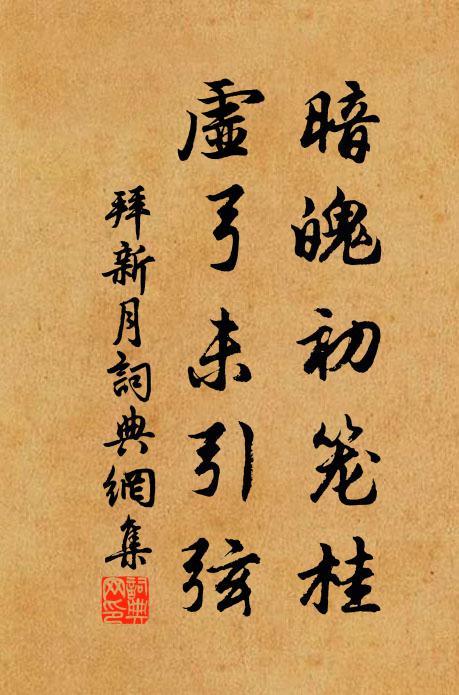 暗魄初笼桂
虚弓未引弦
拜新月詞典網集
詞典
网印